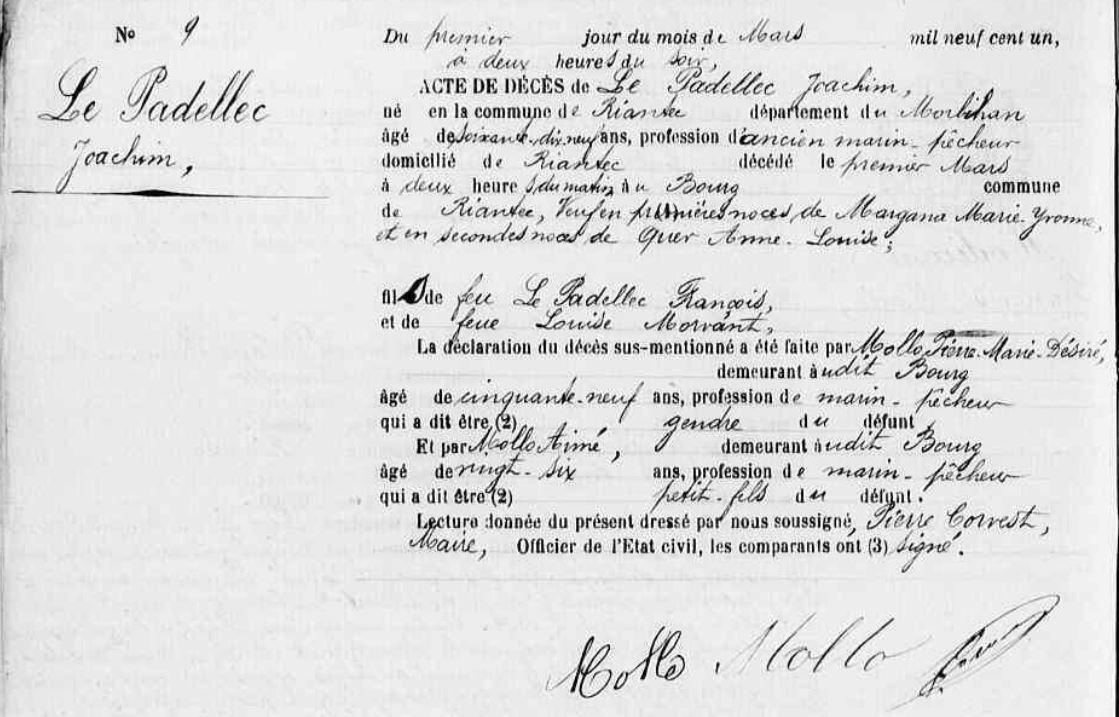 No 9
Le Padellec
Joachim,
Du premier jour du mois de Mars mil neuf cent un,
à deux heures du soir,
ACTE DE DÉCÈS de Le Padellec Joachim,
né en la commune de Riantec département du Morbihan
âgé de soixante-dix-neuf ans, profession d'ancien marin-pêcheur
domicilié de Riantec décédé le premier Mars
à deux heures du matin au Bourg commune
de Riantec, Veuf en premières noces de Margana Marie-Yvonne,
et en secondes noces de Quer Anne-Louise;
fils de feu Le Padellec François,
et de feue Louise Morvant,
La déclaration du décès sus-mentionné a été faite par Mollo Pierre-Marie-Désiré,
demeurant audit Bourg
âgé de cinquante-neuf ans, profession de marin-pêcheur
qui a dit être (2) gendre du défunt
Et par Mollo Aimé, demeurant audit Bourg
âgé de vingt-six ans, profession de marin-pêcheur
qui a dit être (2) petit-fils du défunt.
Lecture donnée du présent dressé par nous soussigné, Pierre Corvest,
Maire, Officier de l'Etat civil, les comparants ont (3) signé.
Mollo Mollo